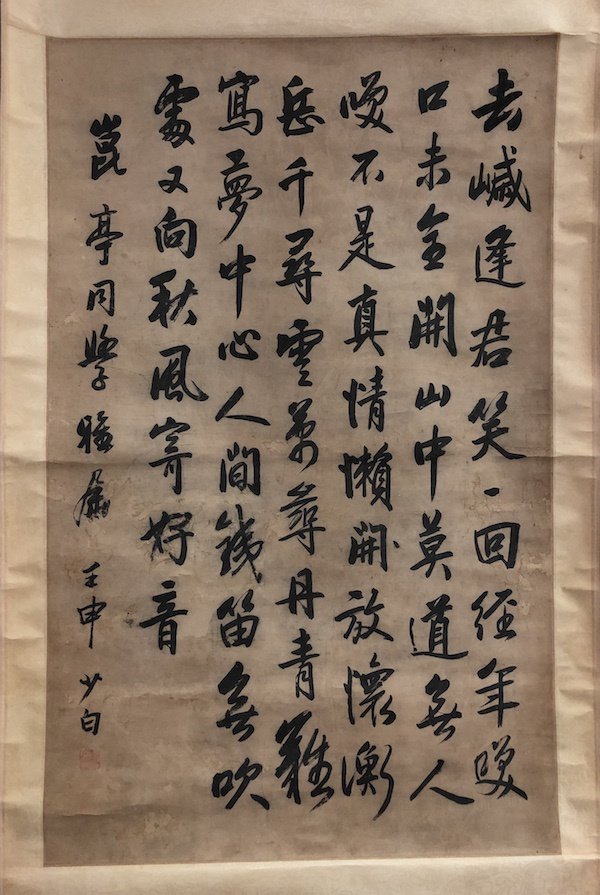 去歲逢君笑一回經年咲
口未全開山中莫道無人
咲不是真情懶開放懷衡
岳千尋雲萬尋丹青難
寫夢中心人間鐵笛無吹
處又向秋風寄好音
崑亭同學雅屬 壬申 少白